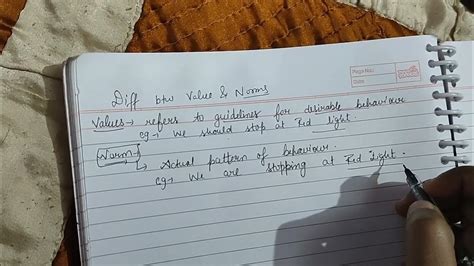 Page No.:
Date:
Diff btw Value & Norms
Values → refers to guidelines for desirable behaviour
eg → We should stop at Red light.
Norm-
↳ Actual pattern of behaviour.
eg → We are stopping at Red light.